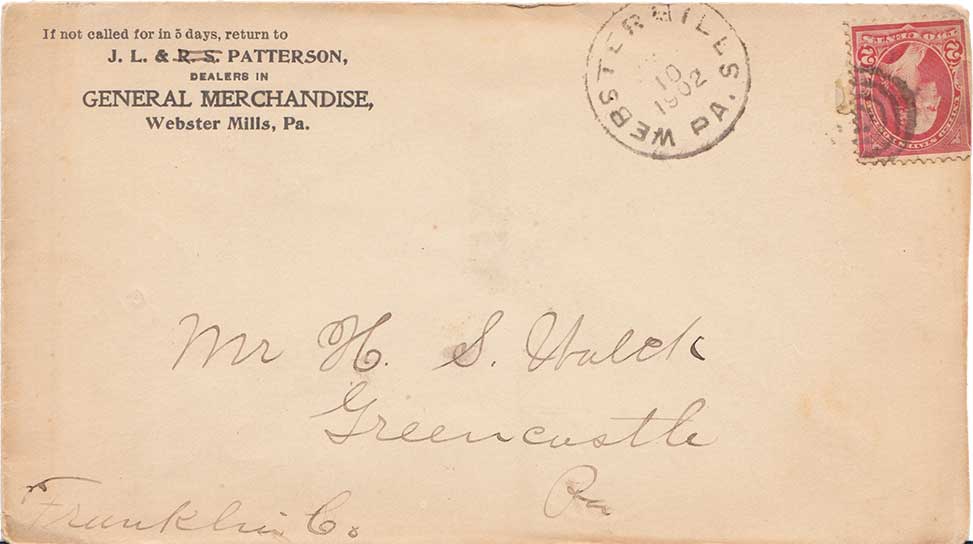 If not called for in 5 days, return to
J. L. & R. S. PATTERSON,
DEALERS IN
GENERAL MERCHANDISE,
Webster Mills, Pa.
WEBSTER MILLS PA.
10
1902
2 2
Mr H. S. Walck
Greencastle
Pa
Franklin Co.